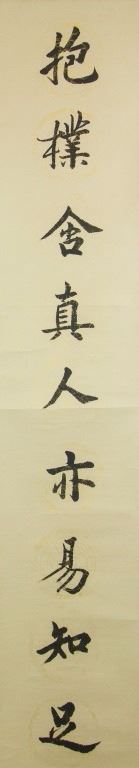 抱樸含真人亦易知足